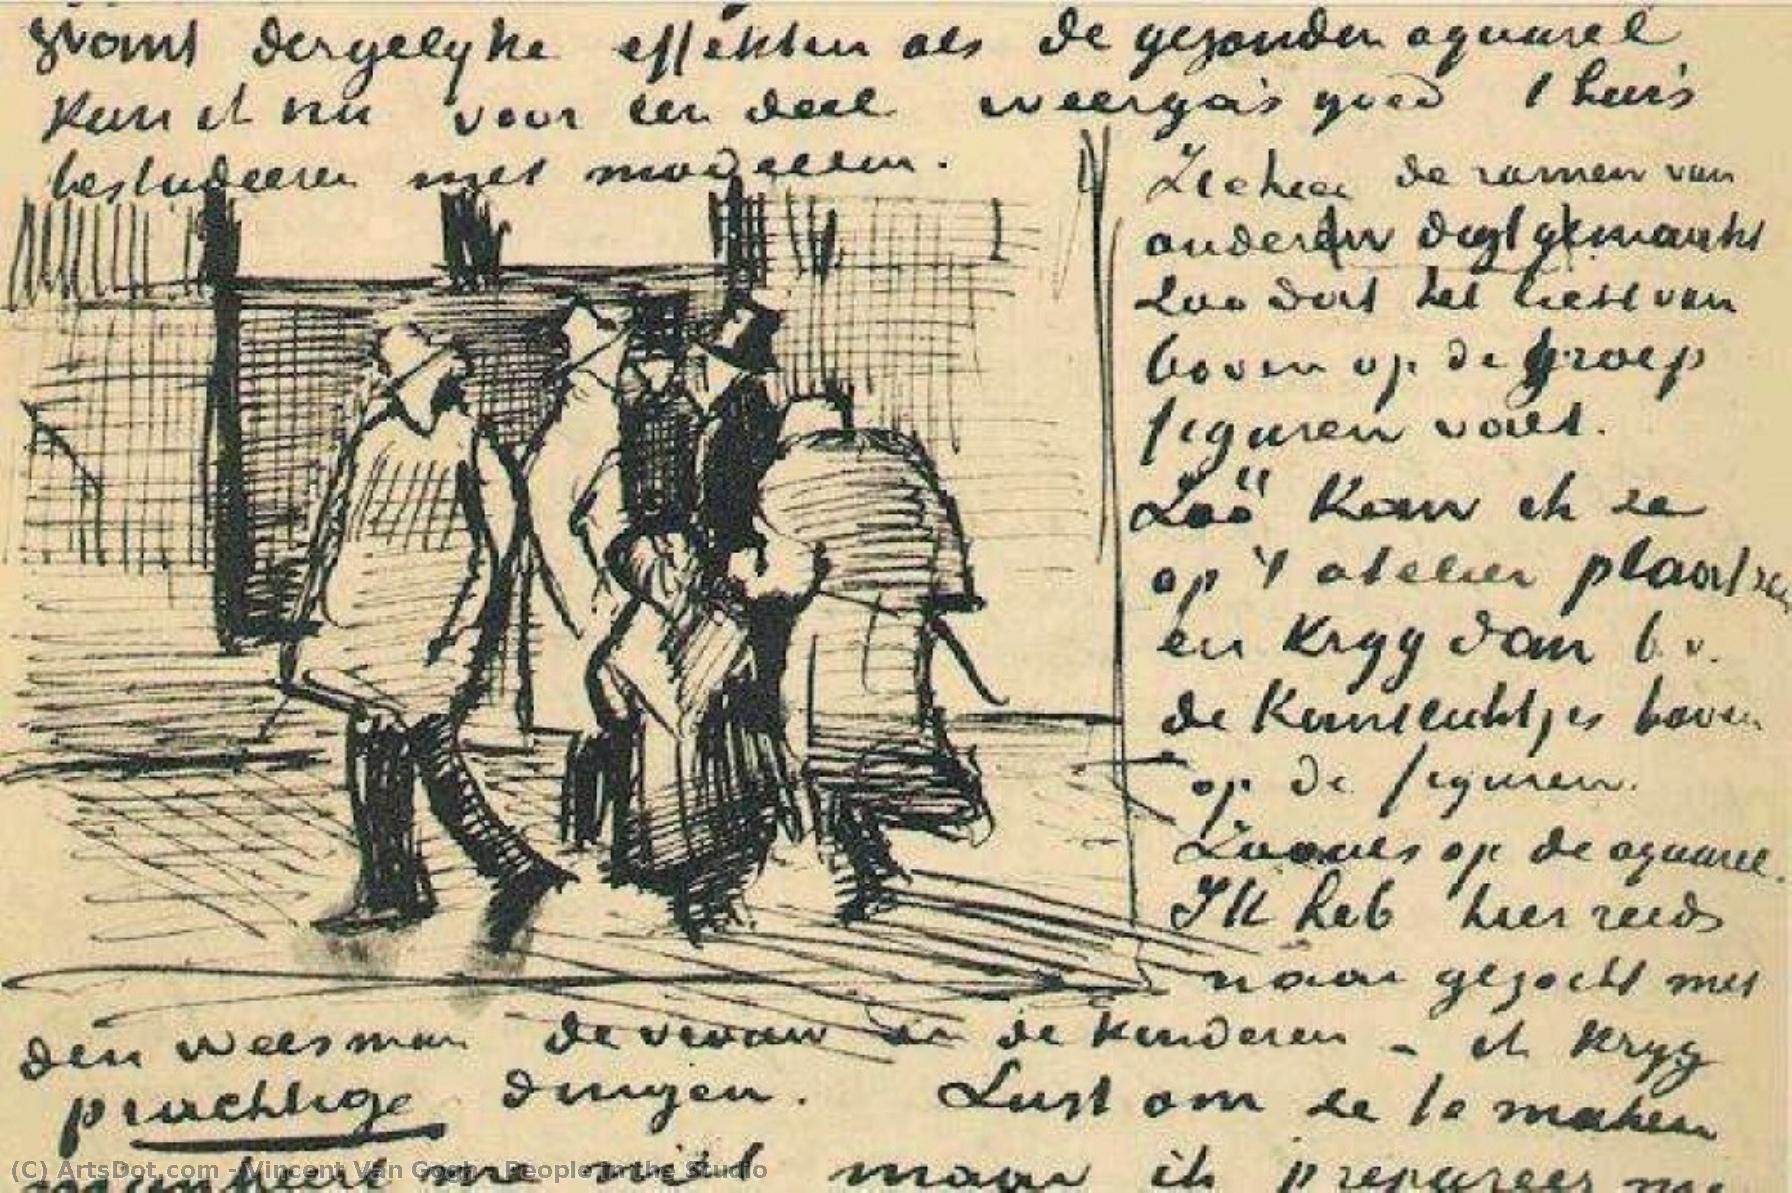 want dergelyke effekten als de gezonden aquarel
kan ik nu voor een deel weergâas goed t huis
bestudeeren met modellen.
Ik heb de ramen van
onderen digt gemaakt
Zoo dat het licht van
boven op de groep
figuren valt.
Zoó kan ik ze
op 't atelier plaatsen
en kryg dan b.v.
de kantlichtjes boven
op de figuren.
Zooals op de aquarel.
Ik heb hier reeds
naar gezocht met
den weesman de vrouw en de kinderen – ik kryg
prachtige dingen. Lust om ze te maken
mankeert me niet maar ik prepareer me
(C) ArtsDot.com - Vincent Van Gogh - People in the Studio